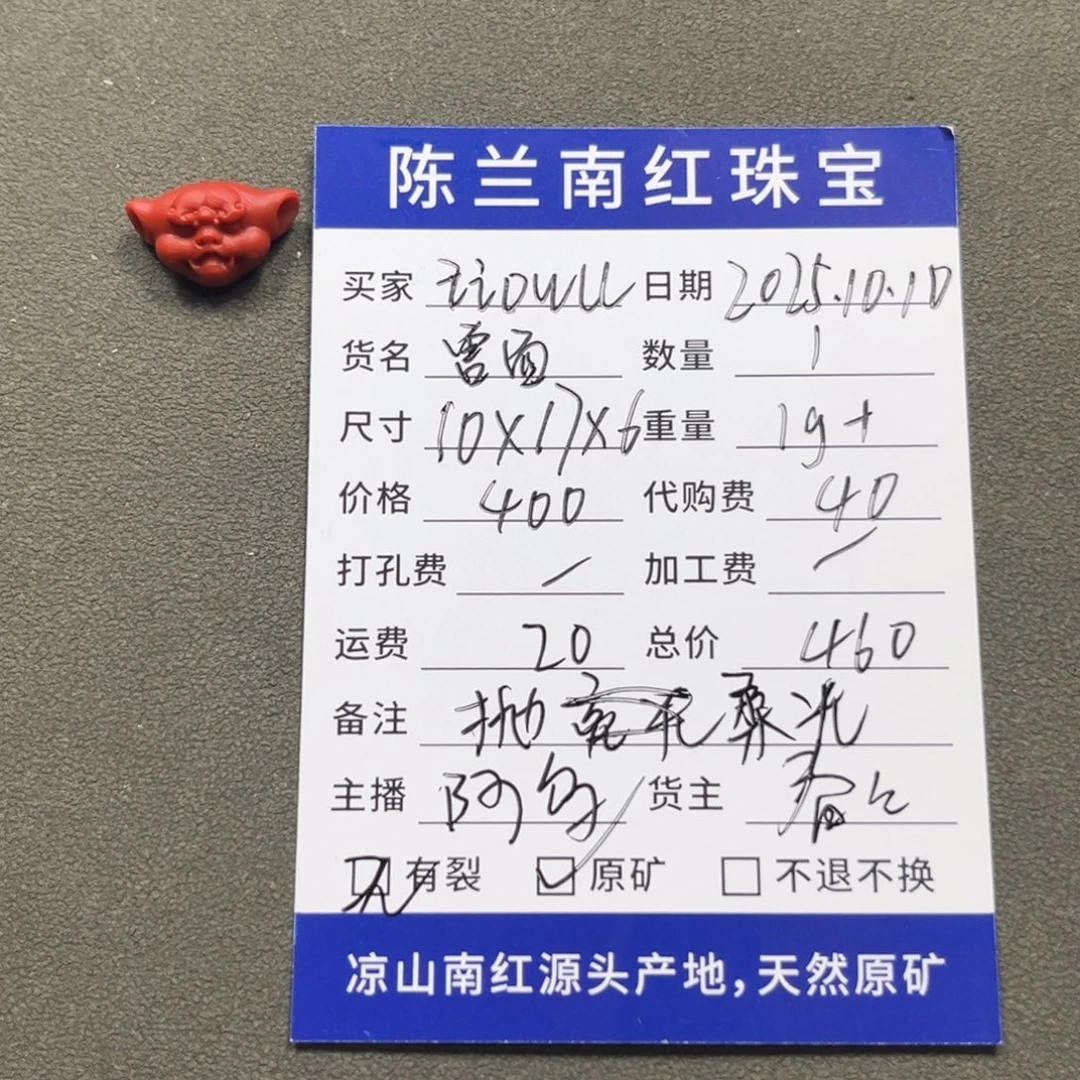 陈兰南红珠宝
买家 日期 2025.10.10
货名 数量 1
尺寸 10X17X6 重量 1g+
价格 400 代购费 40
打孔费 / 加工费 /
运费 20 总价 460
备注 抛 光
主播 阿 货主
无 有裂 ☑ 原矿 □ 不退不换
凉山南红源头产地,天然原矿